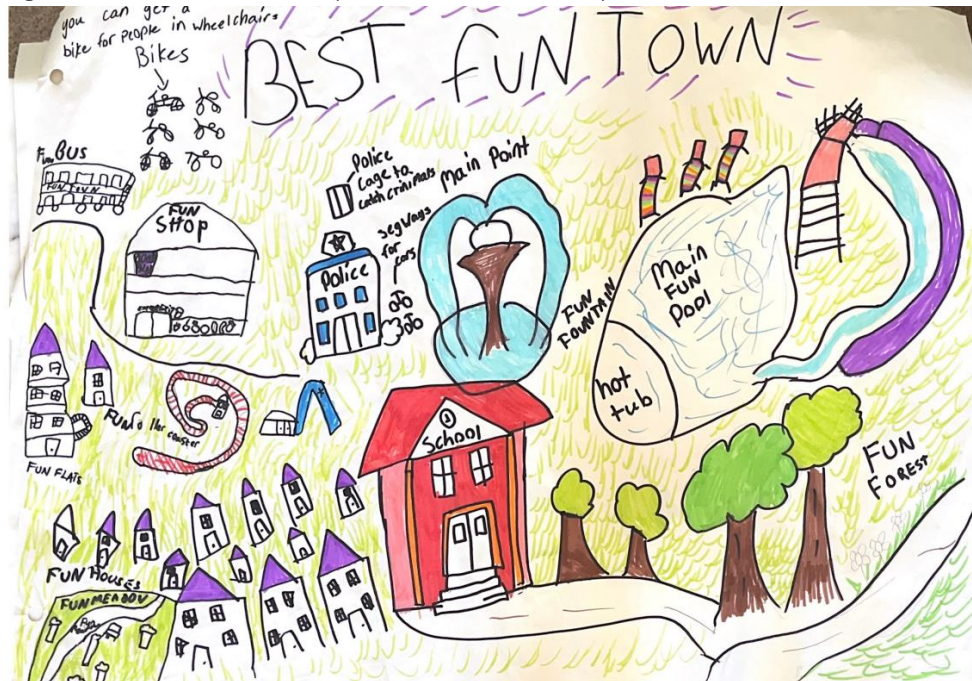 you can get a
bike for people in wheelchairs
Bikes
BEST FUN TOWN
Fun BUS
FUN TOWN
FUN
SHOP
Police
cage to
catch criminals
Main Point
segways
for
cops
Police
FUN
FOUNTAIN
Main
FUN
POOl
hot
tub
FUN FLATS
FUN roller coaster
School
FUN
FOREST
FUN HOUSES
FUN MEADOW